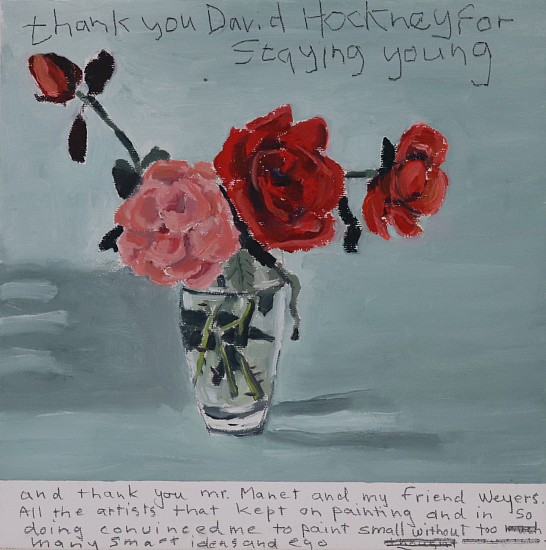 thank you David Hockney for
staying young
and thank you mr. Manet and my friend Weyers.
All the artists that kept on painting and in so
doing convinced me to paint small without too much
many smart ideas and ego